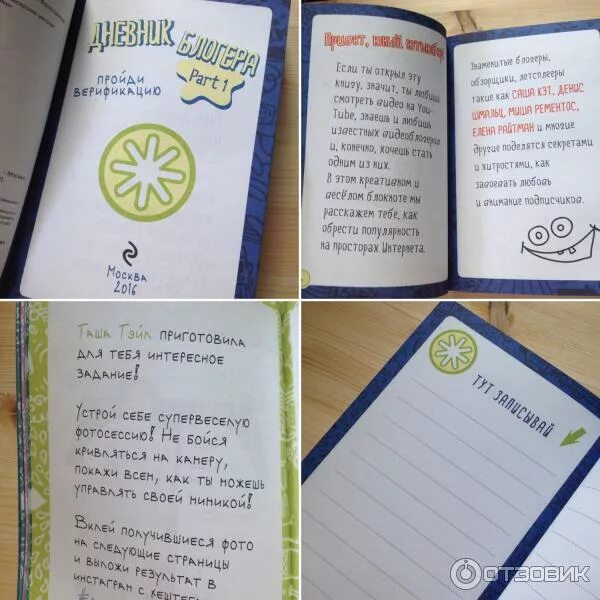 ДНЕВНИК
БЛОГЕРА
Part 1
ПРОЙДИ
ВЕРИФИКАЦИЮ
Москва
2016
Привет, юный ютьюбер!
Если ты открыл эту
книгу, значит, ты любишь
смотреть видео на You-
Tube, знаешь и любишь
известных видеоблогеров
и, конечно, хочешь стать
одним из них.
В этом креативном и
весёлом блокноте мы
расскажем тебе, как
обрести популярность
на просторах Интернета.
Знаменитые блогеры,
обзорщики, летсплееры
такие как САША КЭТ, ДЕНИС
ШМАЛЬЦ, МИША РЕМЕНТОС,
ЕЛЕНА РАЙТМАН и многие
другие поделятся секретами
и хитростями, как
завоевать любовь
и внимание подписчиков.
Таша Тэйл приготовила
для тебя интересное
задание!
Устрой себе супервеселую
фотосессию! Не бойся
кривляться на камеру,
покажи всем, как ты можешь
управлять своей мимикой!
Вклей получившиеся фото
на следующие страницы
и выложи результат в
инстаграм с хештегом
ТУТ ЗАПИСЫВАЙ
ОТЗОВИК